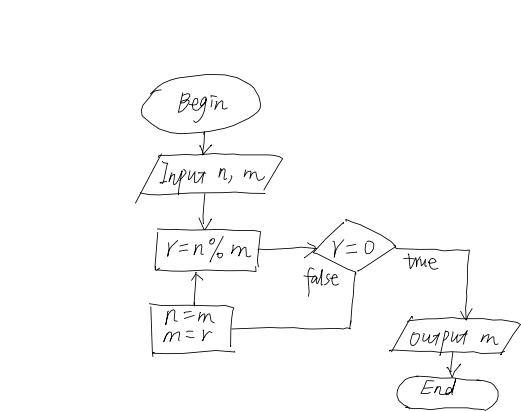 Begin
Input n, m
r=n% m
r=0
true
false
n=m
m=r
output m
End